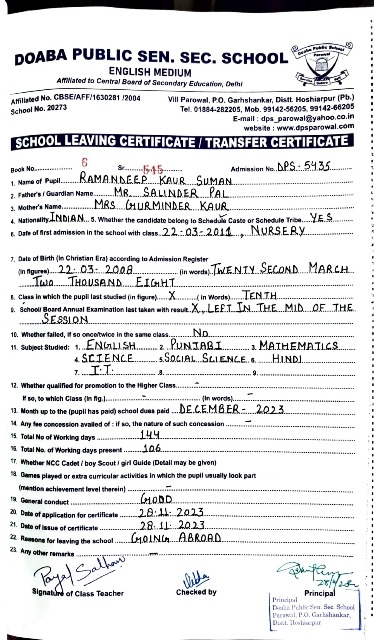 DOABA PUBLIC SEN. SEC. SCHOOL
ENGLISH MEDIUM
Affiliated to Central Board of Secondary Education, Delhi
Affiliated No. CBSE/AFF/1630281 /2004
School No. 20273
Vill Parowal, P.O. Garhshankar, Distt. Hoshiarpur (Pb.)
Tel. 01884-282205, Mob. 99142-56205, 99142-66205
E-mail : dps_parowal@yahoo.co.in
website : www.dpsparowal.com
SCHOOL LEAVING CERTIFICATE / TRANSFER CERTIFICATE
Book No. 6 Sr. 545 Admission No. DPS-5435
1. Name of Pupil RAMANDEEP KAUR SUMAN
2. Father's / Guardian Name MR. SALINDER PAL
3. Mother's Name MRS GURMINDER KAUR
4. Nationality INDIAN 5. Whether the candidate belong to Schedule Caste or Schedule Tribe YES
6. Date of first admission in the school with class. 22-03-2011, NURSERY
7. Date of Birth (In Christian Era) according to Admission Register
(In figures) 22-03-2008 (in words) TWENTY SECOND MARCH
TWO THOUSAND EIGHT
8. Class in which the pupil studied (in figure) X (In Words) TENTH
9. School/Board Annual Examination last taken with result. X, LEFT IN THE MID OF THE
SESSION
10. Whether failed, if so once/twice in the same class NO
11. Subject Studied: 1. ENGLISH 2. PUNJABI 3. MATHEMATICS
4. SCIENCE 5. SOCIAL SCIENCE 6. HINDI
7. I.T. 8. 9.
12. Whether qualified for promotion to the Higher Class -
If so, to which Class (In fig.) - (In words) -
13. Month up to the (pupil has paid) school dues paid DECEMBER-2023
14. Any fee concession availed of : if so, the nature of such concession -
15. Total No of Working days 144
16. Total No. of Working days present 106
17. Whether NCC Cadet / boy Scout / girl Guide (Detail may be given)
18. Games played or extra curricular activities in which the pupil usually look part
(mention achievement level therein) -
19. General conduct GOOD
20. Date of application for certificate 28-11-2023
21. Date of issue of certificate 28-11-2023
22. Reasons for leaving the school GOING ABROAD
23. Any other remarks -
Signature of Class Teacher Checked by Principal
Principal
Doaba Public Sen. Sec. School
P.O. Garhshankar,
Distt. Hoshiarpur